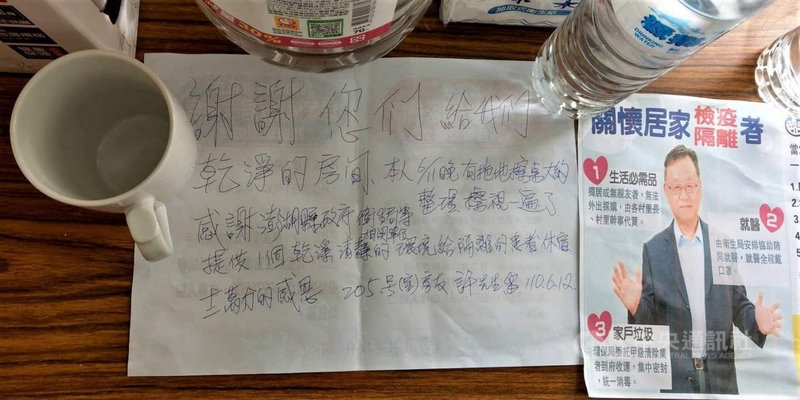 謝謝您們給我们
乾淨的房间.本人今晚有拖地擦桌大的
整理擦視一遍了
感謝澎湖縣政府衛生局等
相関單位
提供1個乾淨清静的環境給隔離的患者休息
十二萬分的感恩 205号(室)房友 許先生留 110.6.12
關懷居家檢疫
隔離者
1 生活必需品
獨居或無親友者,無法
外出採購,由各村里長、
村里幹事代買。
就醫 2
由衛生局安排協助陪
同就醫,就醫全程戴
口罩。
3 家戶垃圾
環保局委託甲級清除業
者到府收運,集中密封,
統一消毒。
中央通訊社
CENTRAL NEWS AGENCY
DRINKING
WATER
30%